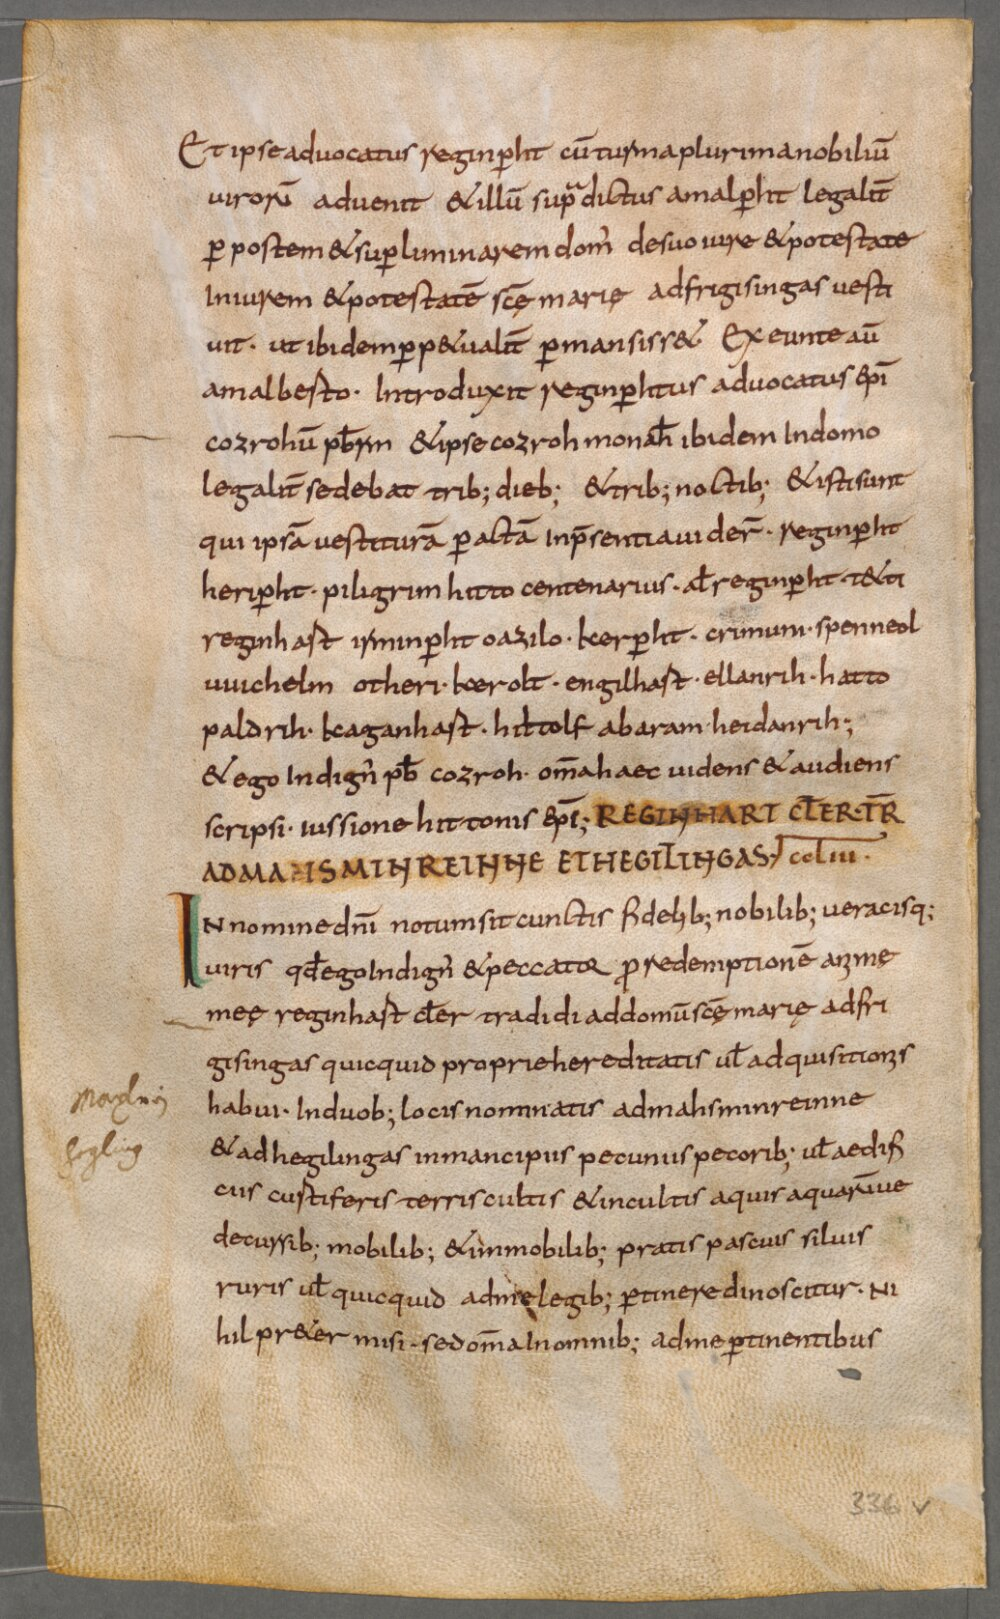 Et ipse advocatus reginp̄ht cū turma plurima nobiliū
uirorū advenit & illū sup̄dictus amalp̄ht legalit̄
p̄ postem & sup̄liminarem dom̄ de suo iure & potestate
In iurem & potestatē sc̄ę marię ad frigisingas vesti
uit · ut ibidem p̄p&ualit̄ p̄mansiss& Exeunte aū
amalbesto · Introduxit reginp̄htus advocatus ep̄i
cozrohū pb̄rm & ipse cozroh monach̄ ibidem In domo
legalit̄ sedebat trib; dieb; & trib; noctib; & isti sunt
qui ipsā vestiturā p̄actā In p̄sentia uider̄ · reginp̄ht
herip̄ht · piligrim hitto centenarius · al̄ reginp̄ht · t&ti
reginhast irminp̄ht oazilo · kerp̄ht · crimuni · spenneol
uuichelm otheri · kerolt · engilhast · ellanrih · hatto
paldrih · kaganhast · hiltolf abaram · heidanrih ;
& ego Indign̄ pb̄ cozroh · om̄a haec uidens & audiens
scripsi · iussione hittonis ep̄i; REGINHART CL̄ER · TR̄
AD MAHSMINREINNE ET HEGILINGAS · ccliii ·
IN nomine dn̄i notum sit cunctis fidelib; nobilib; veracisq;
uiris qd̄ ego Indign̄ & peccator p̄ redemptionē animę
meę reginhast cl̄er tradidi ad domū sc̄ę marię ad fri
gisingas quicquid proprie hereditatis ul̄ adquisitionis
habui · In duob; locis nominatis ad mahsminreinne
& ad hegilingas in mancipiis pecuniis pecorib; ul̄ aedifi
ciis custiferis terris cultis & incultis aquis aquarūue
decursib; mobilib; & inmobilib; pratis pascuis siluis
ruris ul̄ quicquid ad me legib; p̄tinere dinoscitur · Ni
hil pr&er misi · sed om̄a In omnib; ad me p̄tinentibus
hegling
336 v